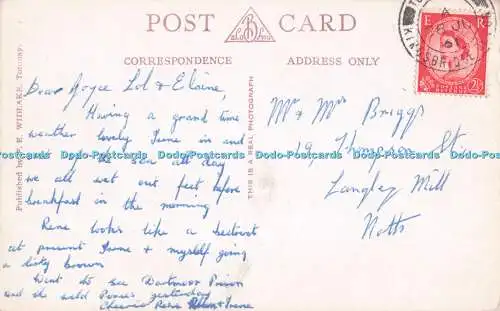 POST CARD
CORRESPONDENCE
ADDRESS ONLY
Dear Joyce Lol & Elaine,
Having a grand time
weather lovely Irene in and
sea all day
we all wet our feet before
breakfast in the morning
Rene looks like a beetroot
at present Irene & myself going
a dirty brown
Went to see Dartmoor Prison
and the wild Ponies yesterday
Cheerio Rene & Irene
Mr & Mrs Briggs
19, Thompson St
Langley Mill
Notts
THIS IS A REAL PHOTOGRAPH
Published by E. WIDEAKE, Torquay.
KINGSBRIDGE
E R
2½D
Dodo-Postcards Dodo-Postcards Dodo-Postcards Dodo-Postcards